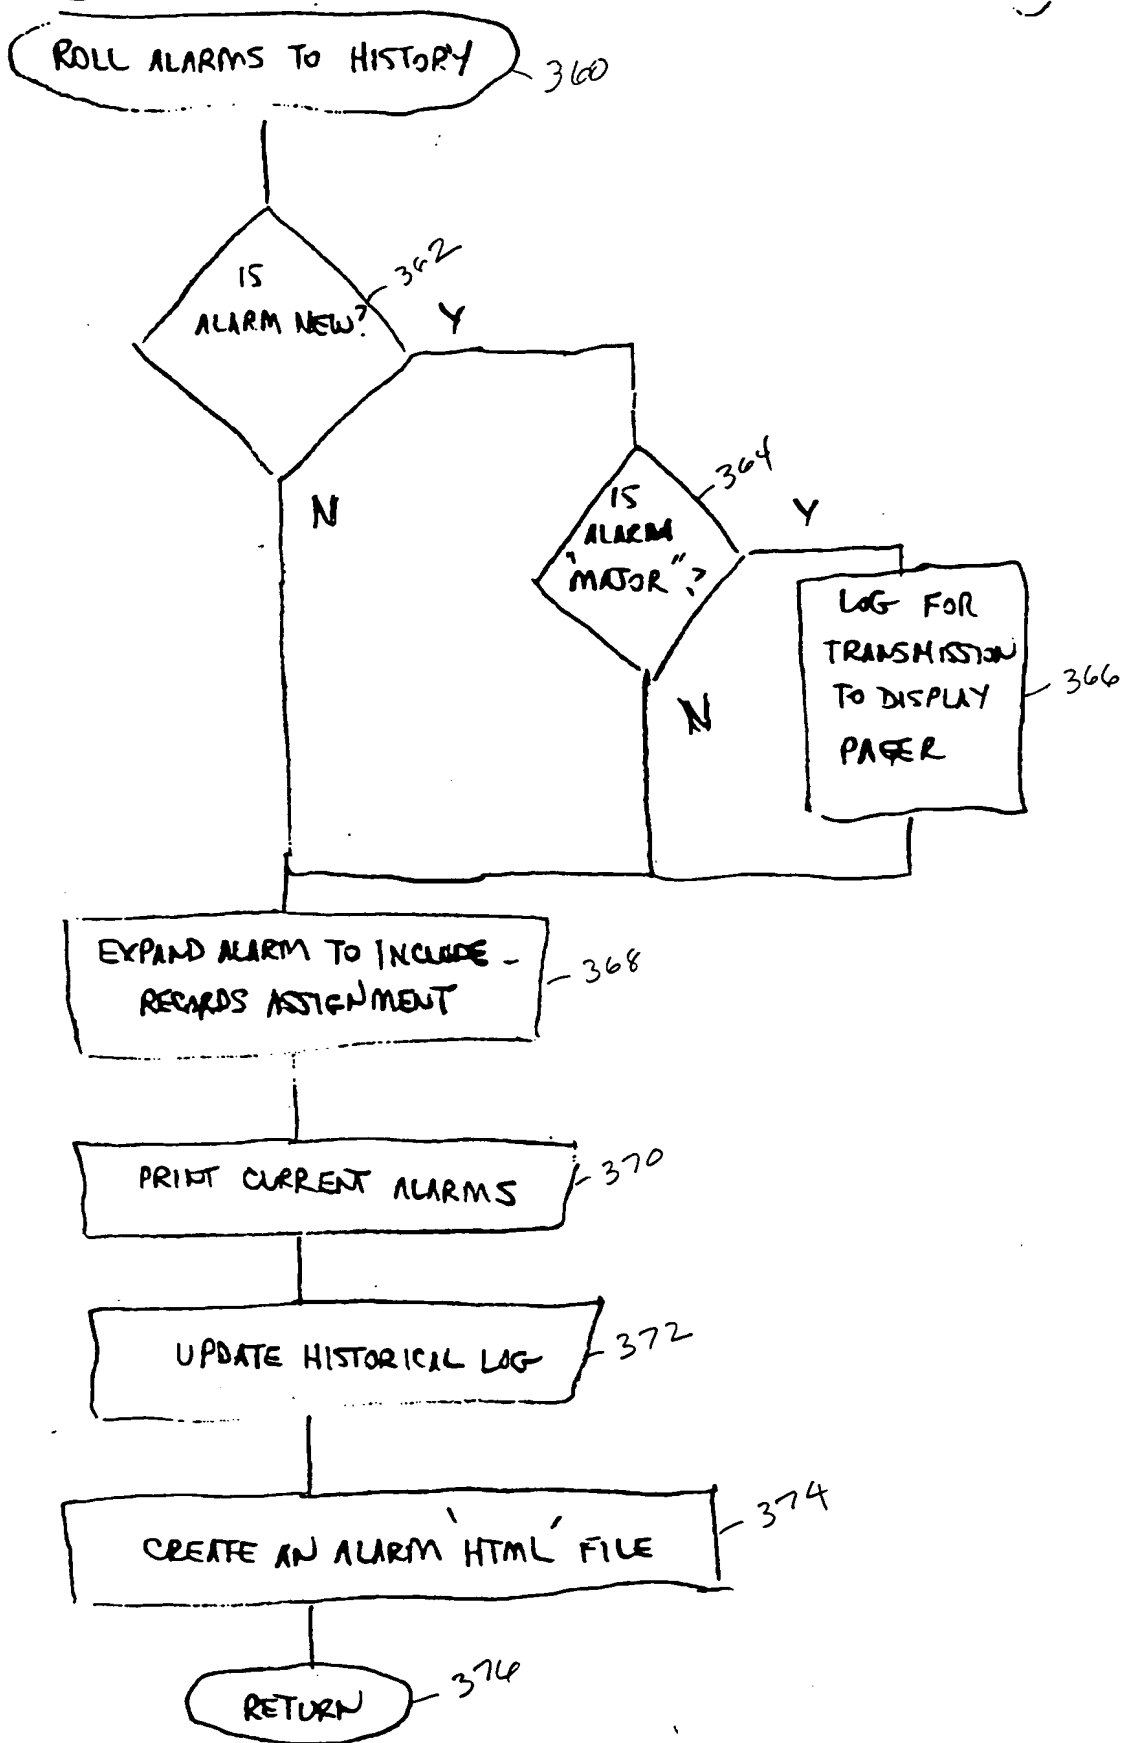 ROLL ALARMS TO HISTORY
360
IS
ALARM NEW?
362
Y
N
IS
ALARM
"MAJOR"?
364
Y
N
LOG FOR
TRANSMISSION
TO DISPLAY
PAGER
366
EXPAND ALARM TO INCLUDE -
RECORDS ASSIGNMENT
368
PRINT CURRENT ALARMS
370
UPDATE HISTORICAL LOG
372
CREATE AN ALARM 'HTML' FILE
374
RETURN
376